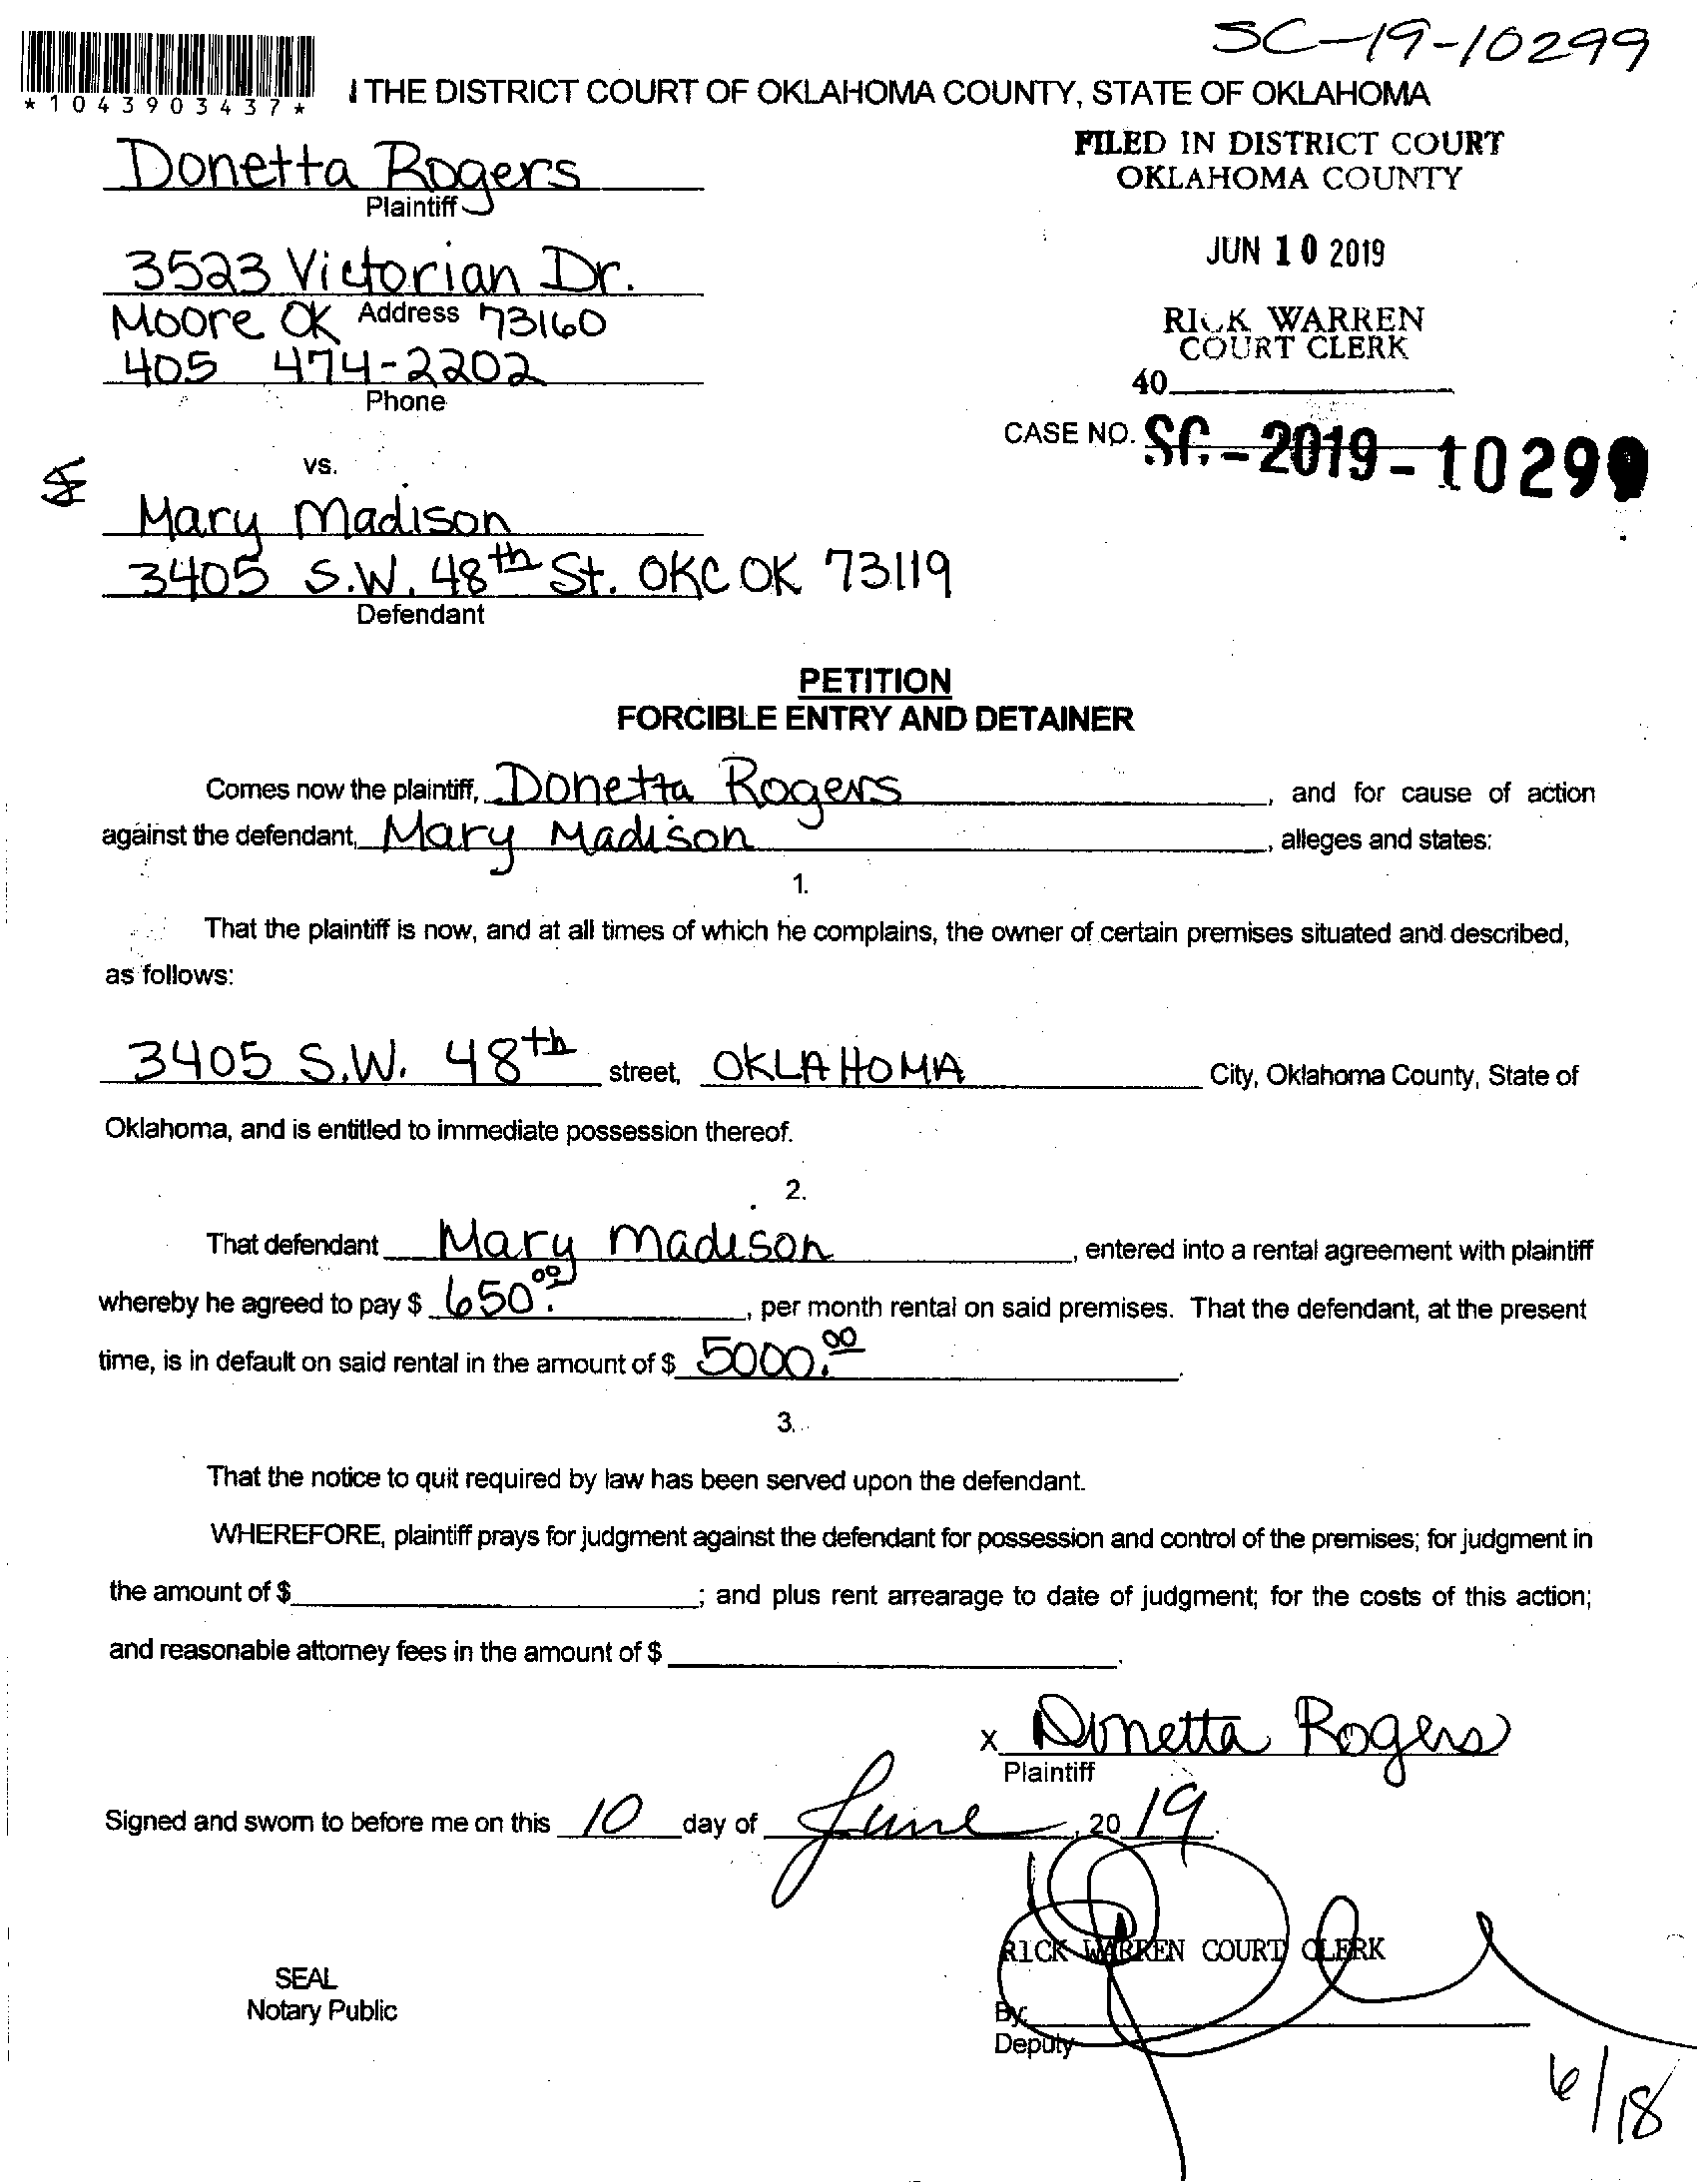 SC-19-10299
*1043903437*
THE DISTRICT COURT OF OKLAHOMA COUNTY, STATE OF OKLAHOMA
FILED IN DISTRICT COURT
OKLAHOMA COUNTY
Donetta Rogers
Plaintiff
JUN 10 2019
3523 Victorian Dr.
Address
Moore OK 73160
RICK WARREN
COURT CLERK
405 474-2202
Phone
40
CASE NO. SC-2019-10299
vs.
Mary Madison
3405 S.W. 48th St. OKC OK 73119
Defendant
PETITION
FORCIBLE ENTRY AND DETAINER
Comes now the plaintiff, Donetta Rogers, and for cause of action
against the defendant, Mary Madison, alleges and states:
1.
That the plaintiff is now, and at all times of which he complains, the owner of certain premises situated and described,
as follows:
3405 S.W. 48th street, OKLAHOMA City, Oklahoma County, State of
Oklahoma, and is entitled to immediate possession thereof.
2.
That defendant Mary Madison, entered into a rental agreement with plaintiff
whereby he agreed to pay $ 650.00, per month rental on said premises. That the defendant, at the present
time, is in default on said rental in the amount of $ 5000.00.
3.
That the notice to quit required by law has been served upon the defendant.
WHEREFORE, plaintiff prays for judgment against the defendant for possession and control of the premises; for judgment in
the amount of $; and plus rent arrearage to date of judgment; for the costs of this action;
and reasonable attorney fees in the amount of $.
x Donetta Rogers
Plaintiff
Signed and sworn to before me on this 10 day of June, 2019.
RICK WARREN COURT CLERK
SEAL
Notary Public
By:
Deputy
6/18